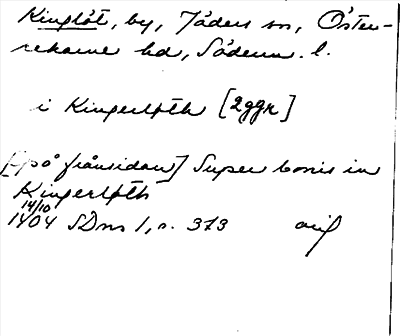 Kinglöt, by, Jäders sn, Öster-
rekarne hd, Söderm. l.
i Kingerløth [2ggr]
[på frånsidan] Super bonis in
Kingerløth
14/10
1404 SDns 1, s. 373 orig